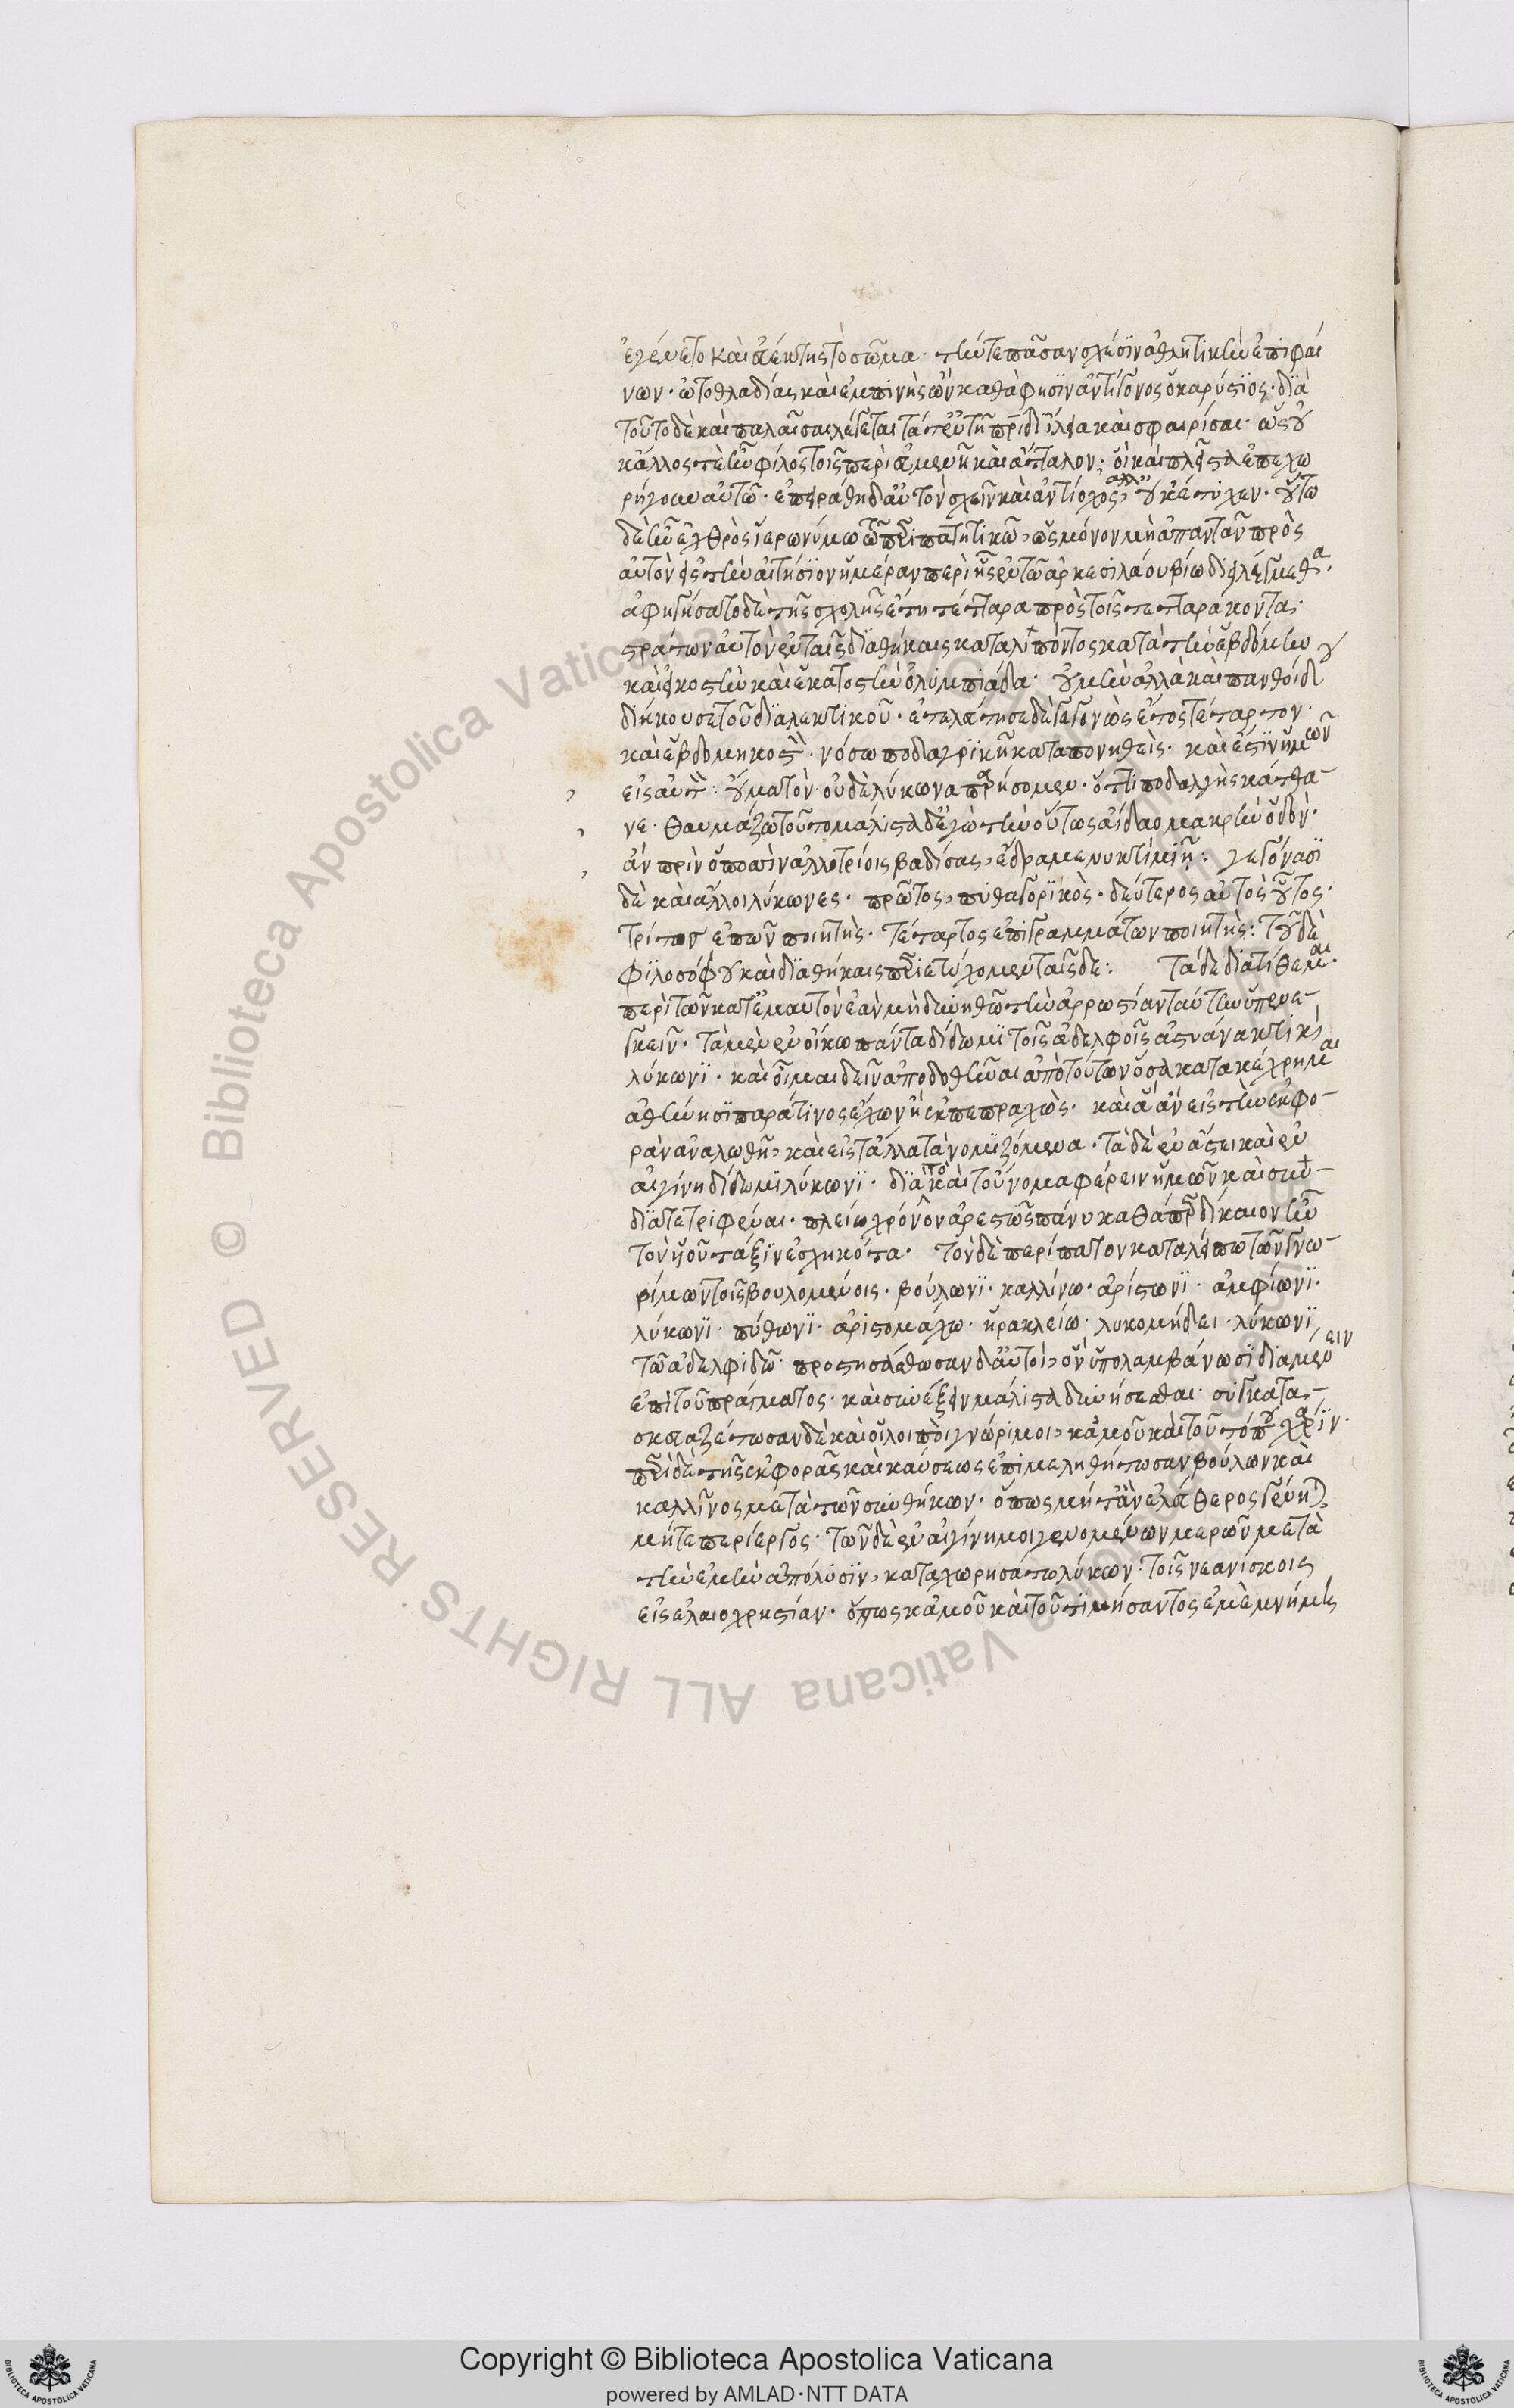 ἐγένετο καὶ εὐέκτης τὸ σῶμα· τήν τε πᾶσαν σχέσιν ἀθλητικὴν ἐπιφαί
νων· ὠτοθλαδίας καὶ ἐμπινὴς ὢν καθά φησιν ἀντίγονος ὁ καρύστιος· διὰ
τοῦτο δὲ καὶ παλαῖσαι λέγεται τὰ ἐν τῆ πρίδι ἴλεια καὶ σφαιρίσαι· ὡς οὐ
κἄλλος τὲ ἦν φίλος τοῖς περὶ εὐμενῆ καὶ ἄτταλον· οἳ καὶ πλεῖστα ἐπεχω
ρήγουν αὐτῶ· ἐπειράθη δ' αὐτὸν σχεῖν καὶ ἀντίοχος, ἀλλ' οὐκ ἔτυχεν· οὕτω
δὲ ἦν ἐχθρὸς ἱερωνύμω τῶ περιπατητικῶ, ὡς μόνον μὴ ἀπαντᾶν πρὸς
αὐτὸν εἰς τὴν ἐτήσιον ἡμέραν περὶ ἧς ἐν τῶ ἀρκεσιλάου βίω διειλέγμεθα·
ἀφηγήσατο δὲ τῆς σχολῆς ἔτη τέτταρα πρὸς τοῖς τετταράκοντα·
στράτωνος αὐτὸν ἐν ταῖς διαθήκαις καταλιπόντος κατὰ τὴν ἑβδόμην
καὶ εἰκοστὴν καὶ ἑκατοστὴν ὀλυμπιάδα· οὐ μὴν ἀλλὰ καὶ πανθοίδου
διήκουσε τοῦ διαλεκτικοῦ· ἐτελεύτησε δὲ γεγονὼς ἔτος τέταρτον
καὶ ἑβδομηκοστὸν· νόσω ποδαγρικῆ καταπονηθεὶς· καὶ ἔστιν ἡμῶν
εἰς αὐτὸν· οὐ μὰ τὸν οὐδὲ λύκωνα παρήσομεν· ὅττι ποδαλγὴς κάτθα–
νε· θαυμάζω τοῦτο μάλιστα δ' ἐγὼ τὴν οὕτως ἀίδαο μακρὴν ὁδὸν·
ἂν πρὶν ὁ ποσσὶν ἀλλοτρίοις βαδίσας, ἔδραμε νυκτὶ μιῆ: γεγόνασι
δὲ καὶ ἄλλοι λύκωνες· πρῶτος, πυθαγορικὸς· δεύτερος αὐτὸς οὗτος·
τρίτος ἐπῶν ποιητὴς· τέταρτος ἐπιγραμμάτων ποιητὴς: τοῦ δὲ
φιλοσόφου καὶ διαθήκαις περιετύχομεν ταῖσδε: Τάδε διατίθεμαι·
περὶ τῶν κατ' ἐμαυτὸν ἐὰν μὴ δυνηθῶ τὴν ἀρρωστίαν ταύτην ὑπενε–
γκεῖν· τὰ μὲν ἐν οἴκω πάντα δίδωμι τοῖς ἀδελφοῖς ἀστυάνακτι καὶ
λύκωνι· καὶ οἶμαι δεῖν ἀποδοθῆναι ἀπὸ τούτων ὅσα κατακέχρημαι
ἀθήνησι παρά τινος ἔχων ἢ ἐκπεπραχὼς· καὶ ἃ ἂν εἰς τὴν ἐκφο–
ρὰν ἀναλωθῆ, καὶ εἰς τἄλλα τὰ νομιζόμενα· τὰ δὲ ἐν ἄστει καὶ ἐν
αἰγίνη δίδωμι λύκωνι· διὰ τὸ καὶ τοὔνομα φέρειν ἡμῶν καὶ συν–
διατετριφέναι· πλείω χρόνον ἀρεστῶς πάνυ καθάπερ δίκαιον ἦν
τὸν υἱοῦ τάξιν ἐσχηκότα· τὸν δὲ περίπατον καταλείπω τῶν γνω–
ρίμων τοῖς βουλομένοις· βούλωνι· καλλίνω· ἀρίστωνι· ἀμφίωνι·
λύκωνι· πύθωνι· ἀριστομάχω· ἡρακλείω· λυκομήδει· λύκωνι
τῶ ἀδελφιδῶ· προστησάσθωσαν δ' αὐτοὶ, ὃν ὑπολαμβάνωσι διαμένειν
ἐπὶ τοῦ πράγματος· καὶ συνέξειν μάλιστα δυνήσεσθαι· συγκατα–
σκευαζέτωσαν δὲ καὶ οἱ λοιποὶ γνώριμοι, κἀμοῦ καὶ τοῦ τόπου χάριν·
περὶ δὲ τῆς ἐκφορᾶς καὶ καύσεως ἐπιμεληθήτωσαν βούλων καὶ
καλλῖνος μετὰ τῶν συνθήκων· ὅπως μήτ' ἀνελεύθερος γένηται
μήτε περίεργος· τῶν δὲ ἐν αἰγίνη μοι γενομένων μερῶν μετὰ
τὴν ἐμὴν ἀπόλυσιν, καταχωρησάτω λύκων τοῖς νεανίσκοις
εἰς ἐλαιοχρηστίαν· ὅπως κἀμοῦ καὶ τοῦ τιμήσαντος ἐμὲ μνήμης
Copyright © Biblioteca Apostolica Vaticana
powered by AMLAD·NTT DATA
© Biblioteca Apostolica Vaticana ALL RIGHTS RESERVED